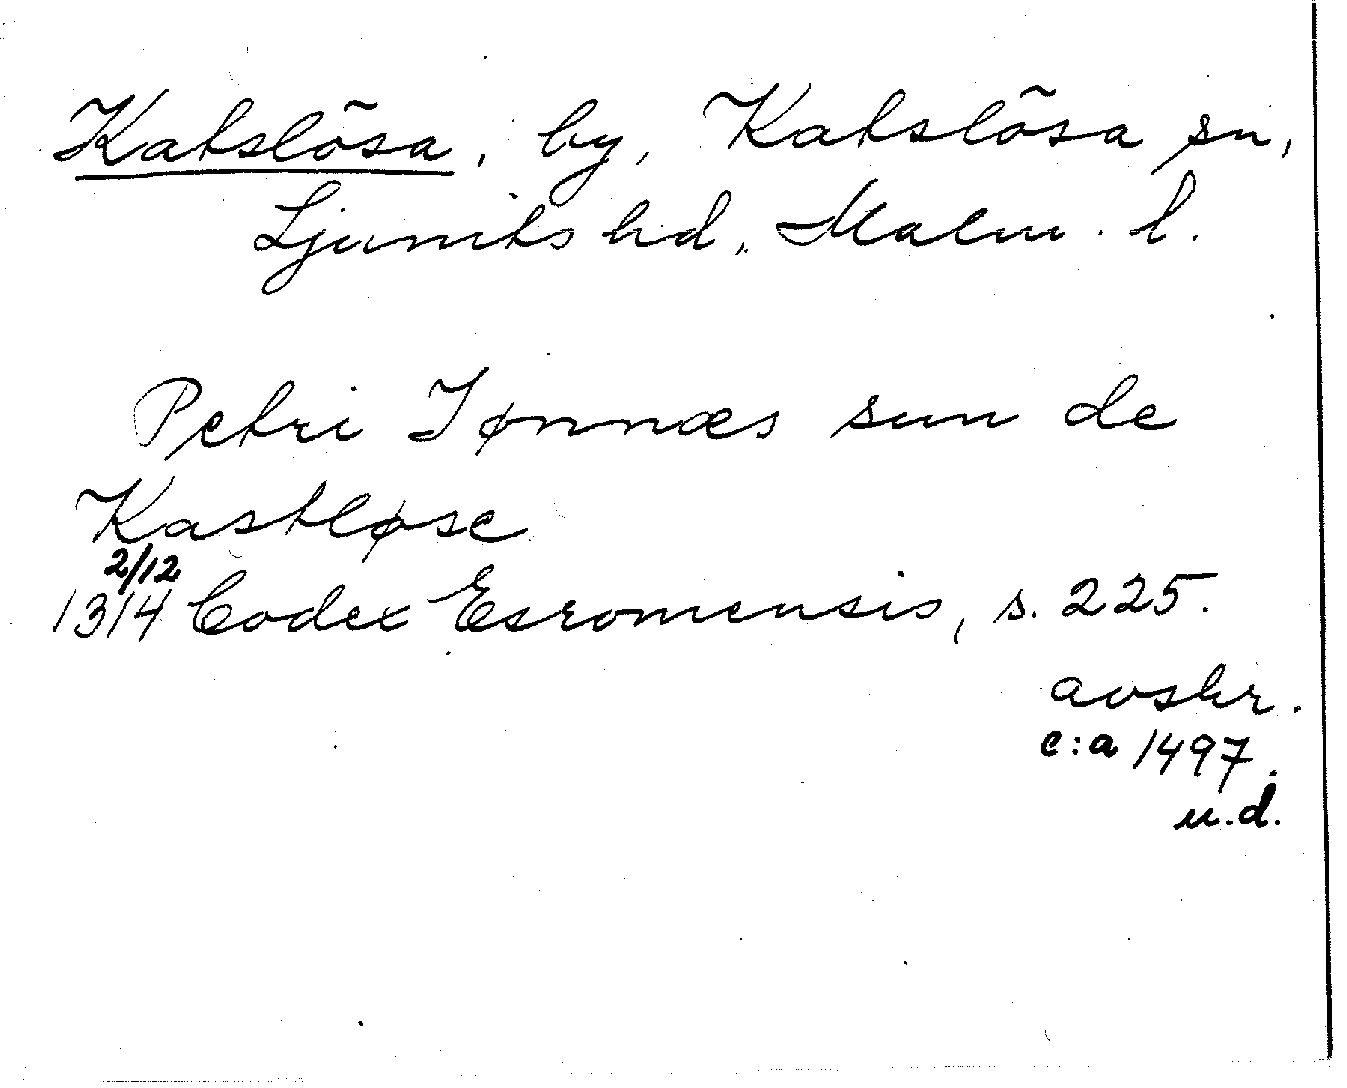 Katslösa, by, Katslösa sn,
Ljunits hd, Malm. l.
Petri Jønnæs sun de
Kastløse
2/12
1314 Codex Esromensis, s. 225.
avskr.
c:a 1497.
u.d.